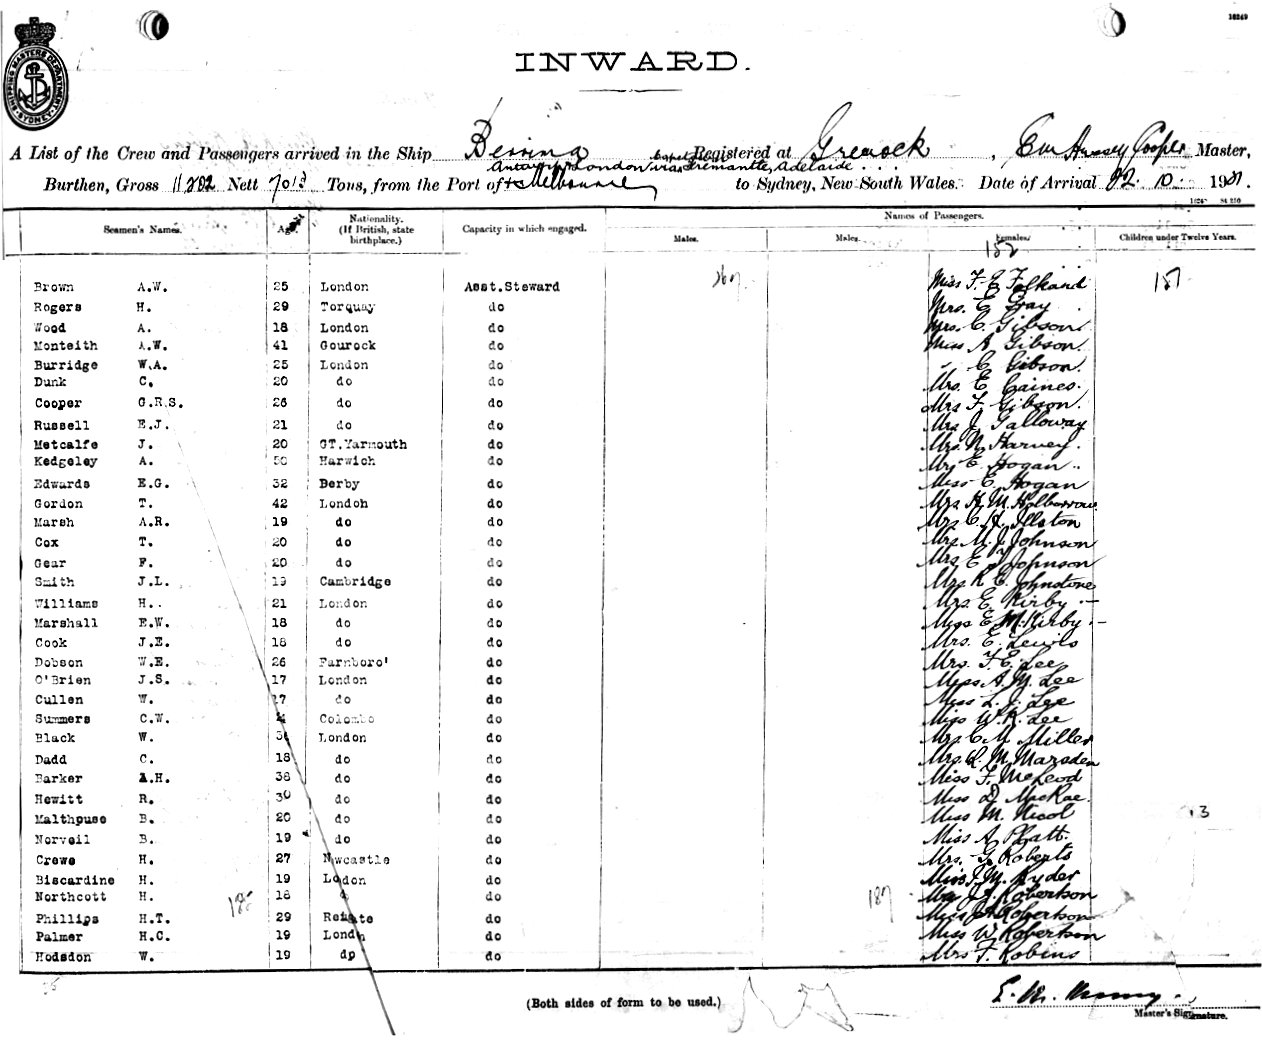 16249
SHIPPING MASTERS DEPARTMENT SYDNEY
INWARD.
A List of the Crew and Passengers arrived in the Ship Berrima Registered at Greenock, Master,
Antwerp London via Fremantle, Adelaide
Burthen, Gross 11202 Nett Tons, from the Port of & Melbourne to Sydney, New South Wales. Date of Arrival 22. 10. 19
Seamen's Names. Age Nationality. (If British, state birthplace.) Capacity in which engaged. Names of Passengers.
Males. Males. Females. Children under Twelve Years.
152
Brown A.W. 25 London Asst.Steward Miss F. E. Folkard 151
Rogers H. 29 Torquay do Mrs. E Gray
Wood A. 18 London do Mrs. C. Gibson
Monteith A.W. 41 Gourock do Miss A Gibson.
Burridge W.A. 25 London do " C Gibson.
Dunk C. 20 do do Mrs. E Caines.
Cooper G.R.S. 26 do do Mrs F. Gibson.
Russell E.J. 21 do do Mrs J Galloway
Metcalfe J. 20 GT.Yarmouth do Mrs. N. Harvey.
Kedgeley A. 50 Harwich do Mrs E. Hogan
Edwards E.G. 32 Derby do Miss E. Hogan
Gordon T. 42 London do Mrs H. M. Holborrow
Marsh A.R. 19 do do Mrs C. H. Illston
Cox T. 20 do do Mrs M. J. Johnson
Gear F. 20 do do Mrs E J Johnson
Smith J.L. 19 Cambridge do Mrs R. E. Johnstone
Williams H. 21 London do Mrs. E Kirby
Marshall E.W. 18 do do Miss E. M. Kirby
Cook J.E. 18 do do Mrs. E. Lewis
Dobson W.E. 26 Farnboro' do Mrs. F. E. Lee
O'Brien J.S. 17 London do Miss A. M. Lee
Cullen W. 17 do do Miss L. J. Lee
Summers C.W. Colombo do Miss W. R. Lee
Black W. London do Mrs C M Miller
Dadd C. 18 do do Mrs. L. M. Marsden
Barker A.H. 38 do do Miss F. McLeod
Hewitt R. 30 do do Miss D MacRae.
Malthpuse B. 20 do do Miss M. Nicol 3
Norveil B. 19 do do Miss A. Pratt.
Crewe H. 27 Newcastle do Mrs. G. Roberts
Biscardine H. 19 London do Miss J. M. Ryder
Northcott H. 18 do 187 Mrs J. A. Robertson
Phillips H.T. 29 Reigate do Miss J A Robertson
Palmer H.C. 19 London do Miss W Robertson
Hodsdon W. 19 do do Mrs F. Robins
(Both sides of form to be used.)
Master's Signature.